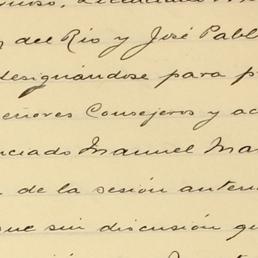 del Río y José Pabl
designándose para p
eñores Consejeros y ac
nciado Manuel Ma
de la sesión anter
que sin discusión qu